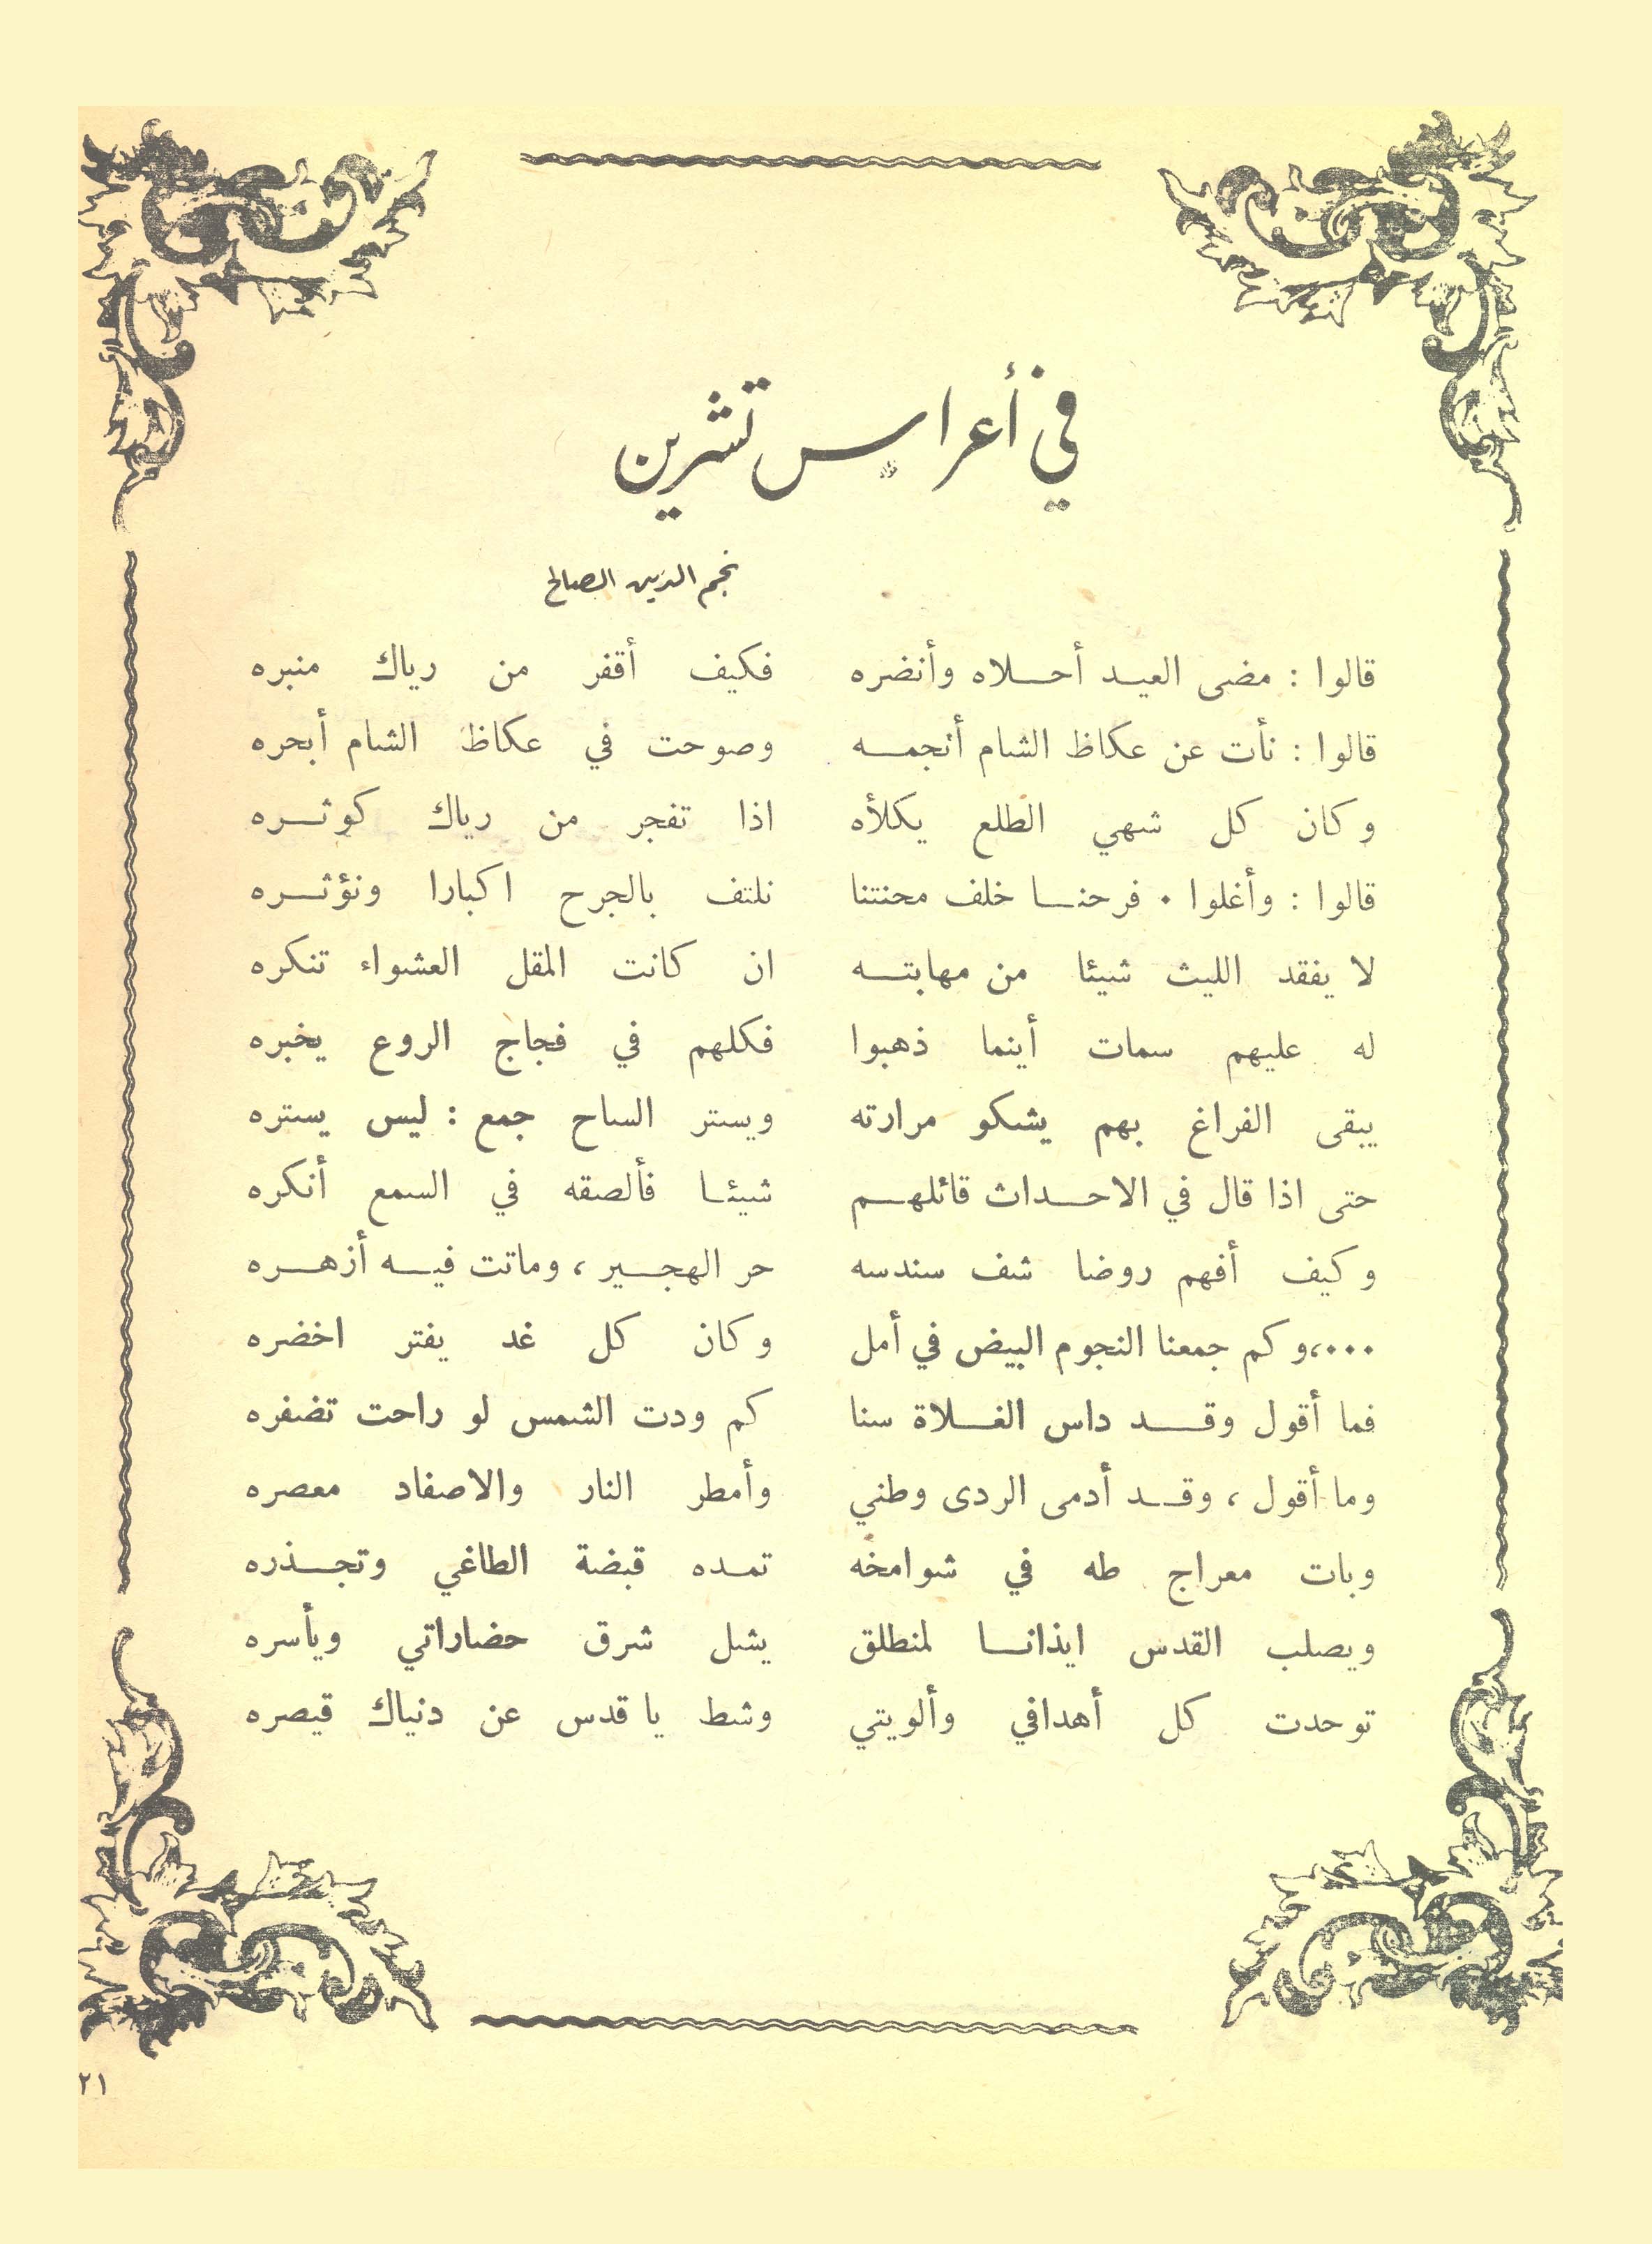 في أعراس تشرين
نجم الدين الصالح
قالوا : مضى العيد أحلاه وأنضره فكيف أقفر من رياك منبره
قالوا : نأت عن عكاظ الشام أنجمه وصوحت في عكاظ الشام أبحره
وكان كل شهي الطلع يكلأه اذا تفجر من رياك كوثره
قالوا : وأغلوا . فرحنا خلف محنتنا نلتف بالجرح اكبارا ونؤثره
لا يفقد الليث شيئا من مهابته ان كانت المقل العشواء تنكره
له عليهم سمات أينما ذهبوا فكلهم في فجاج الروع يخبره
يبقى الفراغ بهم يشكو مرارته ويستر الساح جمع : ليس يستره
حتى اذا قال في الاحداث قائلهم شيئا فألصقه في السمع أنكره
وكيف أفهم روضا شف سندسه حر الهجير ، وماتت فيه أزهره
...،وكم جمعنا النجوم البيض في أمل وكان كل غد يفتر اخضره
فما أقول وقد داس الغلاة سنا كم ودت الشمس لو راحت تضفره
وما أقول ، وقد أدمى الردى وطني وأمطر النار والاصفاد معصره
وبات معراج طه في شوامخه تمده قبضة الطاغي وتجذره
ويصلب القدس ايذانا لمنطلق يشل شرق حضاراتي ويأسره
توحدت كل أهدافي وألويتي وشط يا قدس عن دنياك قيصره
٢١